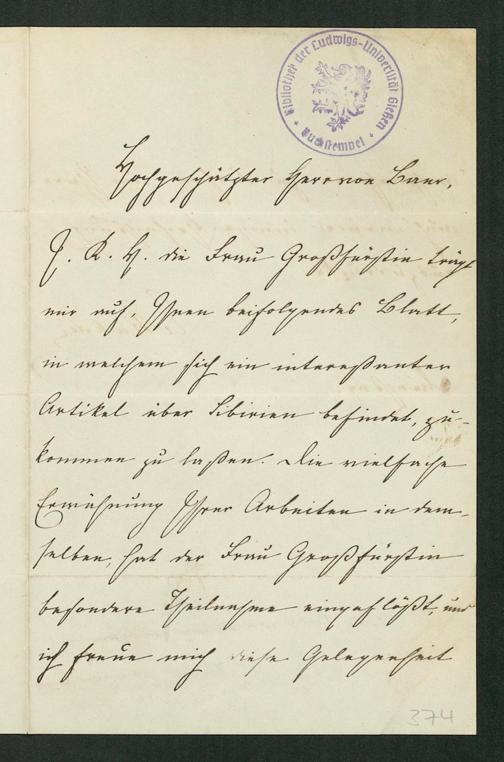 Bibliothek der Ludwigs-Universität Gießen
Hochgeschätzter Herr von Baer,
J. K. H. die Frau Großfürstin trägt
mir auf, Ihnen beifolgendes Blatt,
in welchem sich ein interessanter
Artikel über Sibirien befindet, zu-
kommen zu laßen. Die vielfache
Erwähnung Ihrer Arbeiten in dem-
selben, hat der Frau Großfürstin
besondere Theilnahme eingeflößt, und
ich freue mich diese Gelegenheit
374